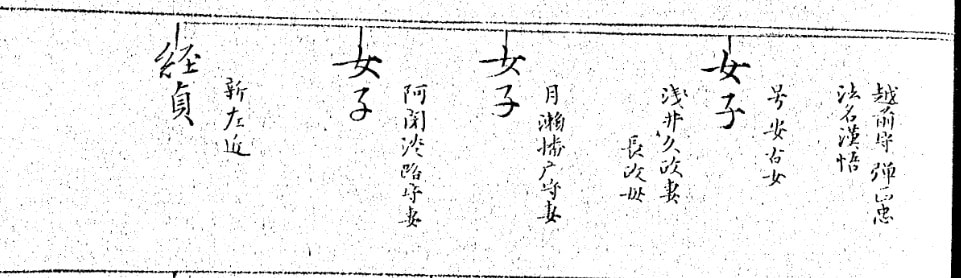 越前守 弾正忠
法名漢悟
女子
号安古女
浅井久政妻
長政母
女子
月瀬播广守妻
女子
阿閉淡路守妻
経貞
新左近